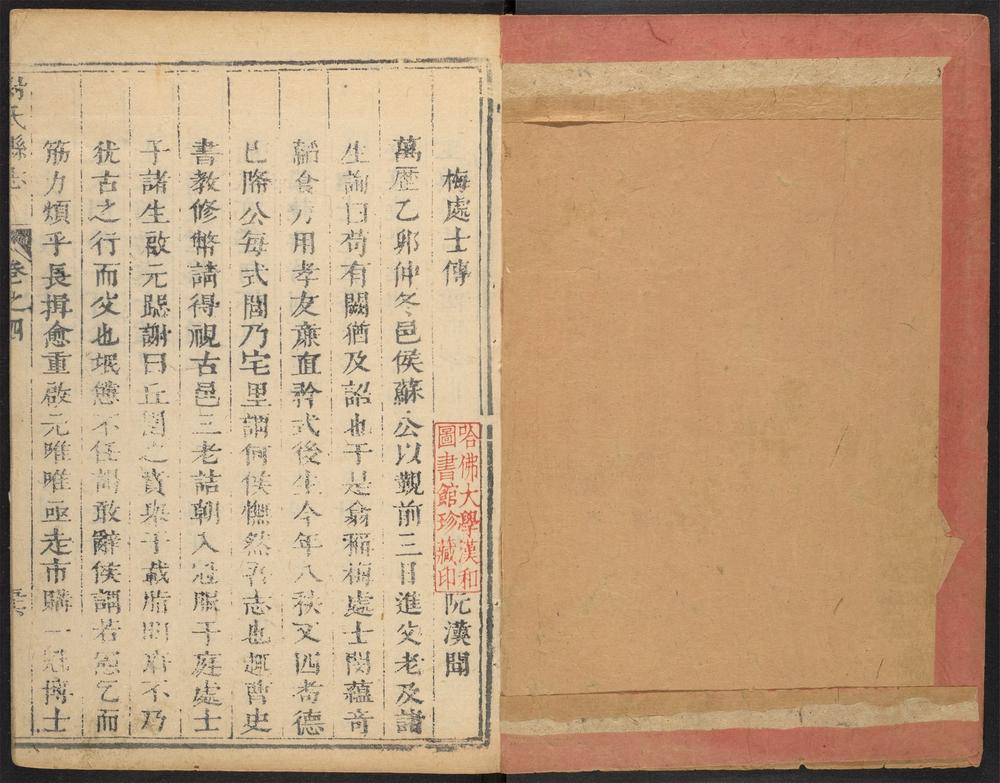 梅處士傳
阮漢聞
哈佛大學漢和
圖書館珍藏印
萬歷乙卯仲冬邑侯蘇公以覲前三日進父老及諸
生諭曰苟有闕猶及詔也于是僉稱梅處士閔蘊奇
韜食力用孝友廉直矜式後生今年八秩又四耆德
已隆公每式閭乃宅里謂何侯憮然吾志也趣曹史
書教修幣請得視古邑三老詰朝入冠服于庭處士
子諸生啟元跽謝曰丘園之賁
不乃
犹古之行而父也
不任
敢辭侯謂若
乞而
筋力煩乎長揖愈重啟元唯唯亟走市購一冠博士
氏縣志
卷之四